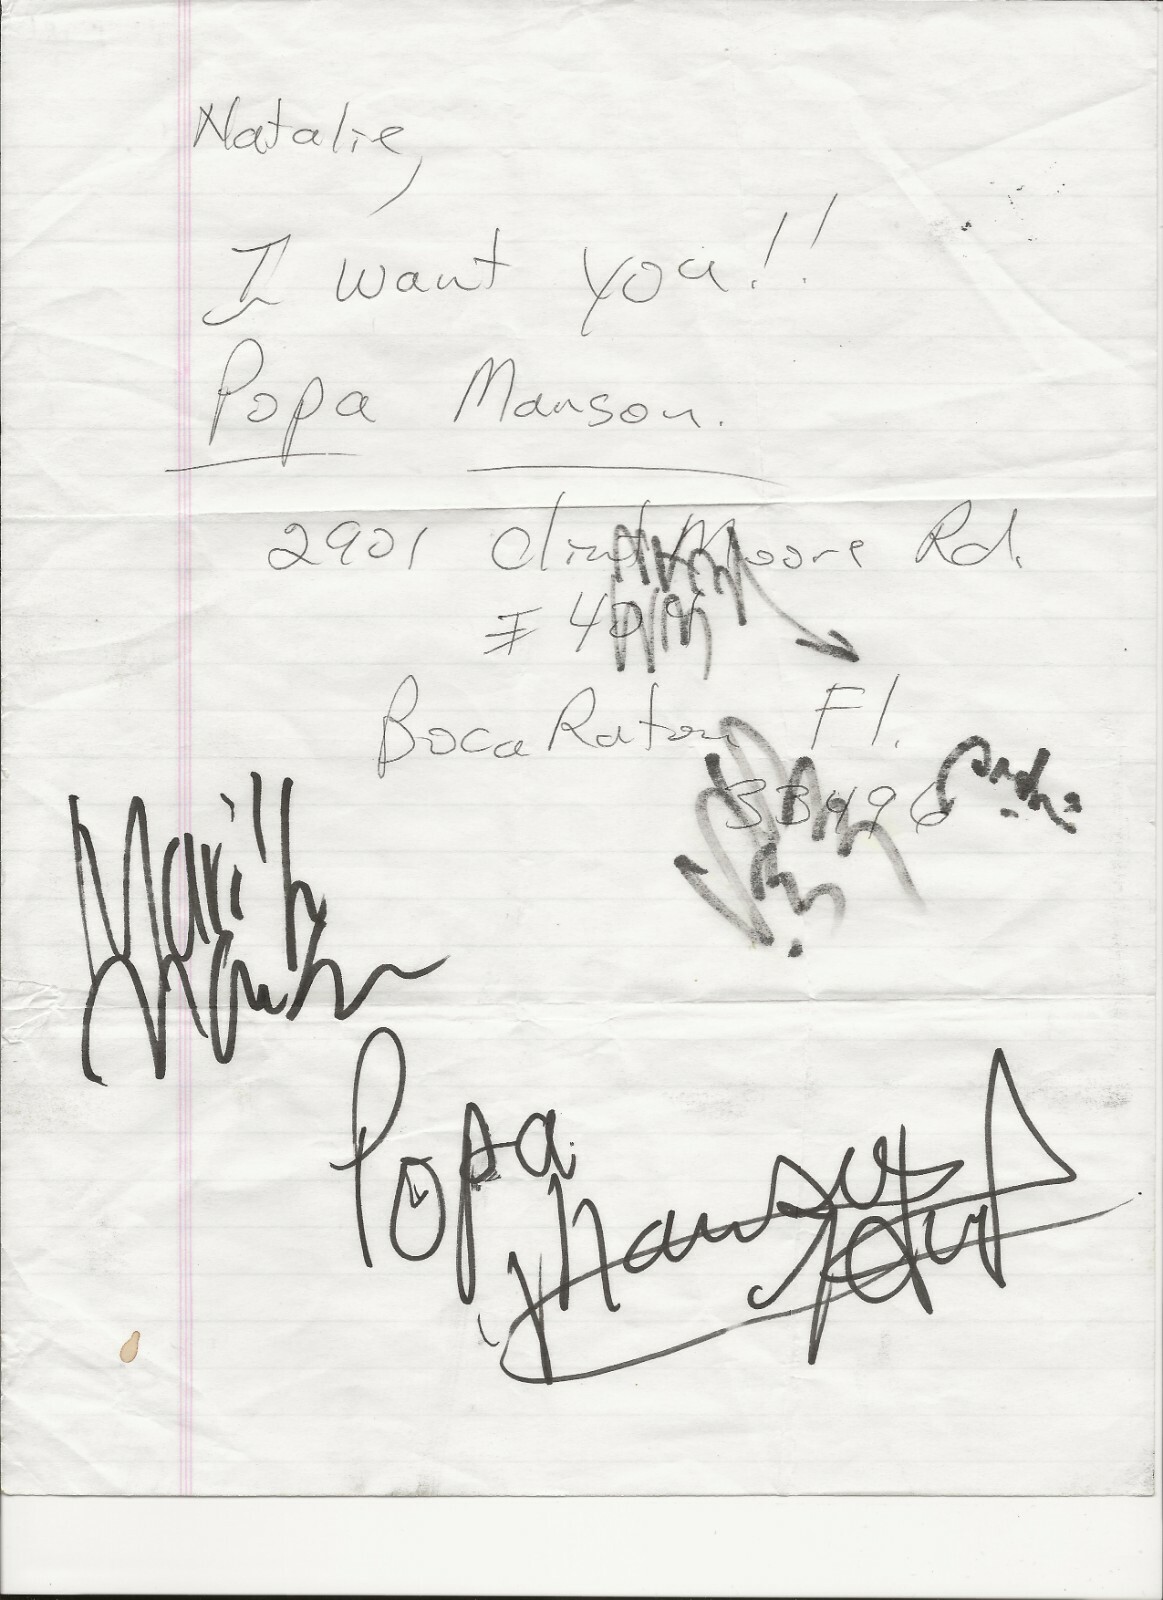 Natalie,
I want you!!
Popa Manson.
2901 Clint Moore Rd.
# 404
Boca Raton Fl.
33496
Marilyn
Manson
Popa
Manson